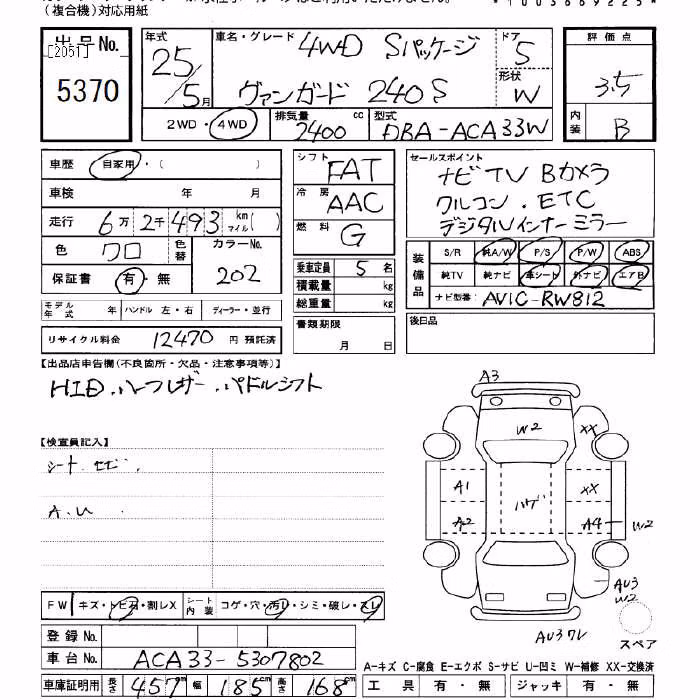 (複合機)対応用紙
出品No. [2051] 5370
年式 25/5月
車名・グレード 4WD Sパッケージ
ヴァンガード 240S
ドア 5
形状 W
評価点 3.5
内装 B
2WD・4WD
排気量 2400 cc
型式 DBA-ACA33W
車歴 自家用・( )
車検 年 月
走行 6万2千493 km マイル( )
色 クロ 色替 カラーNo. 202
保証書 有・無
モデル年式 年 ハンドル 左・右 ディーラー・並行
リサイクル料金 12470 円 預託済
シフト FAT
冷房 AAC
燃料 G
乗車定員 5 名
積載量 kg
総重量 kg
書類期限 月 日
セールスポイント
ナビTV Bカメラ
クルコン・ETC
デジタルインナーミラー
装備品 S/R 純A/W P/S P/W ABS
純TV 純ナビ 革シート 外ナビ エアB
ナビ型番: AVIC-RW812
後日品
【出品店申告欄(不良箇所・欠品・注意事項等)】
HID.ハーフレザー.パドルシフト
【検査員記入】
シート
A.U
FW キズ・トビ石・割レX シート内装 コゲ・穴・汚レ・シミ・破レ・スレ
登録No.
車台No. ACA33-5307802
車庫証明用 長さ 457 幅 185 cm 高さ 168 cm
A3
W2 XX
A1 ハゲ XX
A2 A4 W2
AU3
W2
AU3ワレ
スペア
A-キズ C-腐食 E-エクボ S-サビ U-凹ミ W-補修 XX-交換済
工具 有・無 ジャッキ 有・無